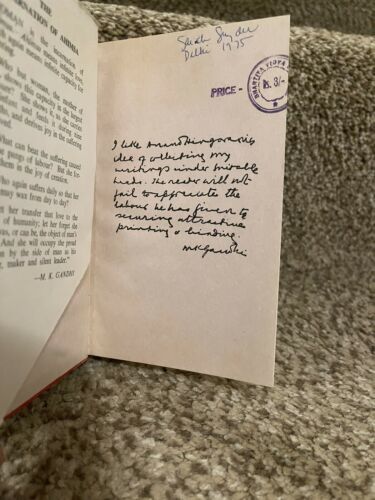 THE
RNATION OF AHIMSA
OMAN is the incarnation of
Ahimsa means infinite love,
again means infinite capacity for
Who but woman, the mother of
shows this capacity in the largest
She shows it as she carries
infant and feeds it during nine
and derives joy in the suffering
What can beat the suffering caused
pangs of labour? But she for-
them in the joy of creation.
Who again suffers daily so that her
may wax from day to day?
let her transfer that love to the
of humanity; let her forget she
was, or can be, the object of man's
And she will occupy the proud
by the side of man as his
maker and silent leader."
—M. K. GANDHI
Sarah Snyder
Delhi 1975
PRICE -
BHARTIYA VIDYA
Rs. 3/-
I like Anand Hingorani's
idea of collecting my
writings under suitable
heads. The reader will not
fail to appreciate the
labour he has given to
securing attractive
printing & binding.
MKGandhi